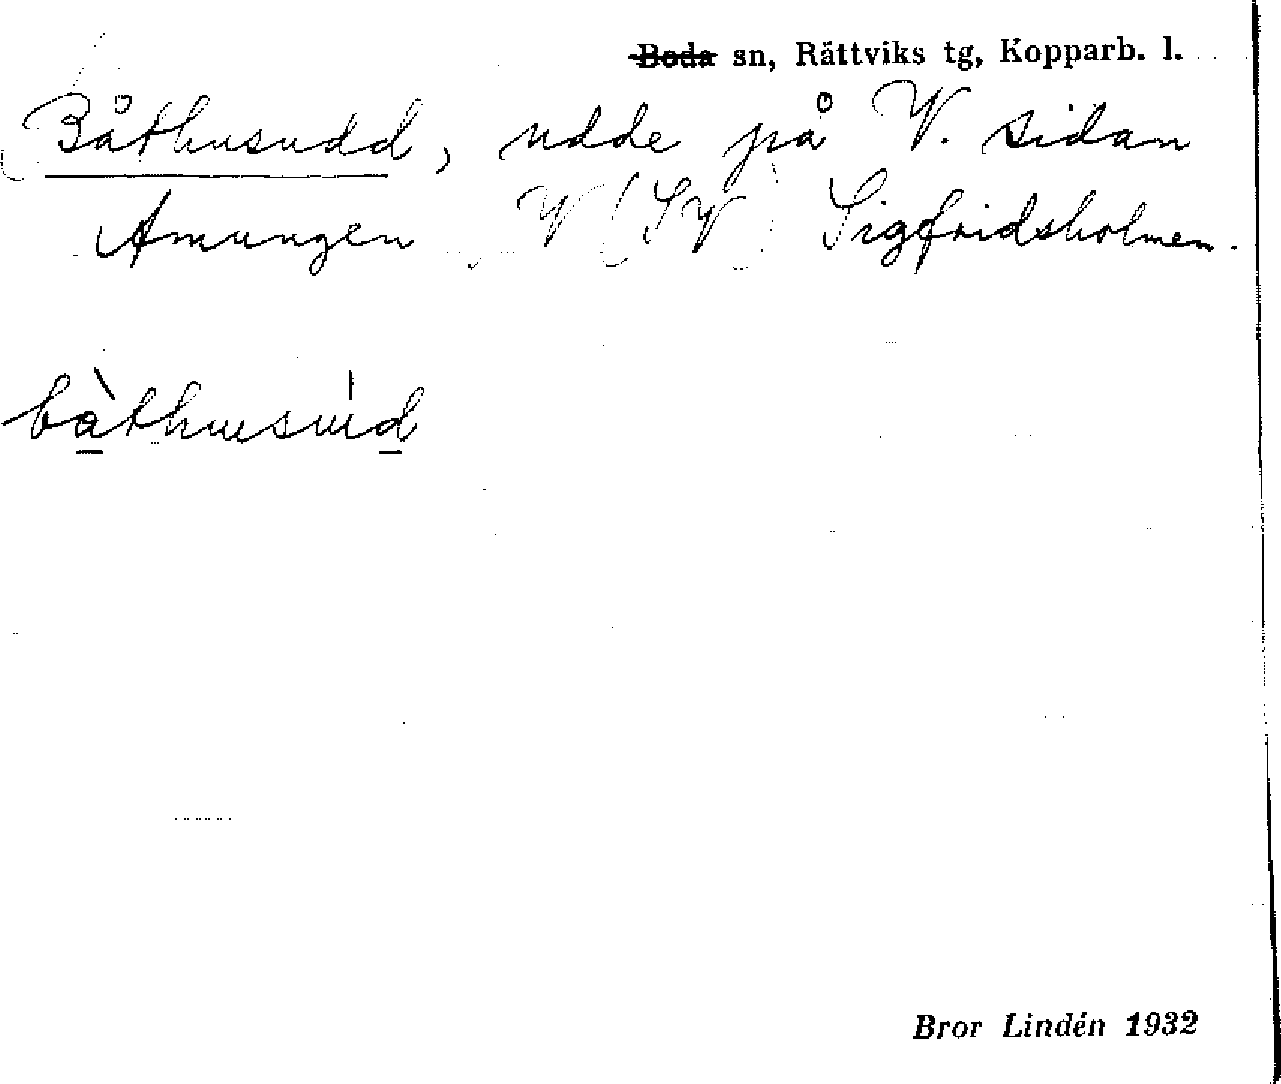 Boda sn, Rättviks tg, Kopparb. l.
Båthusudd, udde på V. sidan
Amungen, V (SV) Sigfridsholmen.
bàthusud
Bror Lindén 1932